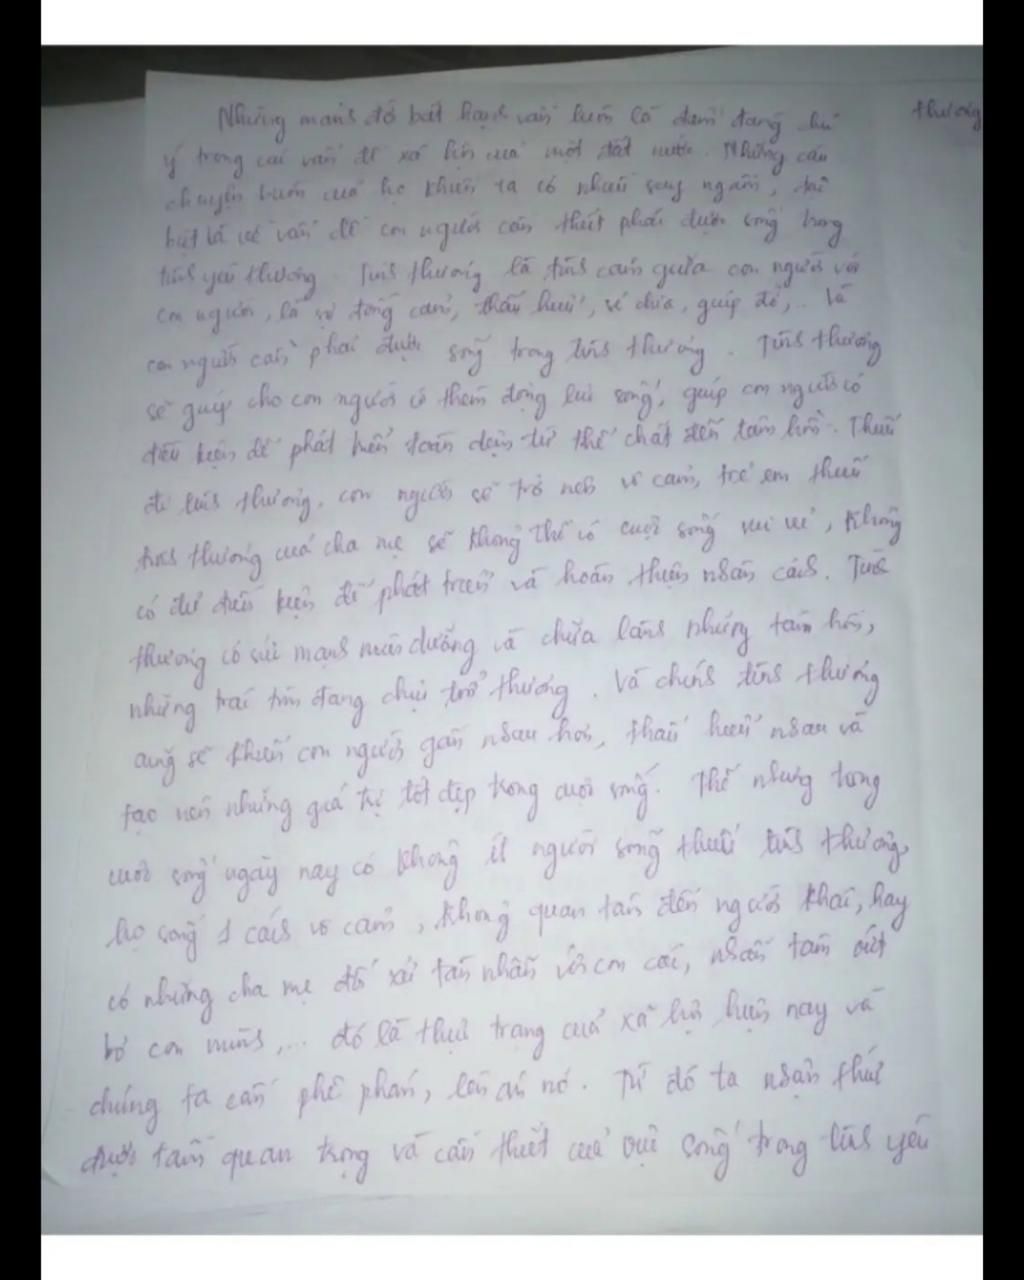 Những mảnh đời bất hạnh vẫn luôn là điểm đáng chú
ý trong các vấn đề xã hội của một đất nước. Những câu
chuyện buồn của họ khiến ta có nhiều suy ngẫm, đặc
biệt là về vấn đề con người cần thiết phải được sống trong
tình yêu thương. Tình thương là tình cảm giữa con người với
con người, là sự đồng cảm, thấu hiểu, sẻ chia, giúp đỡ,... Và
con người cần phải được sống trong tình thương. Tình thương
sẽ giúp cho con người có thêm động lực sống, giúp con người có
điều kiện để phát triển toàn diện từ thể chất đến tâm hồn. Thiếu
đi tình thương, con người sẽ trở nên vô cảm, trẻ em thiếu
tình thương của cha mẹ sẽ không thể có cuộc sống vui vẻ, không
có đủ điều kiện để phát triển và hoàn thiện nhân cách. Tình
thương có sức mạnh nuôi dưỡng và chữa lành những tâm hồn,
những trái tim đang chịu tổn thương. Và chính tình thương
cũng sẽ khiến con người gần nhau hơn, thấu hiểu nhau và
tạo nên những giá trị tốt đẹp trong cuộc sống. Thế nhưng trong
cuộc sống ngày nay có không ít người sống thiếu tình thương,
họ sống 1 cách vô cảm, không quan tâm đến người khác, hay
có những cha mẹ đối xử tàn nhẫn với con cái, nhẫn tâm vứt
bỏ con mình,... đó là thực trạng của xã hội hiện nay và
chúng ta cần phê phán, lên án nó. Từ đó ta nhận thức
được tầm quan trọng và cần thiết của việc sống trong tình yêu
thương